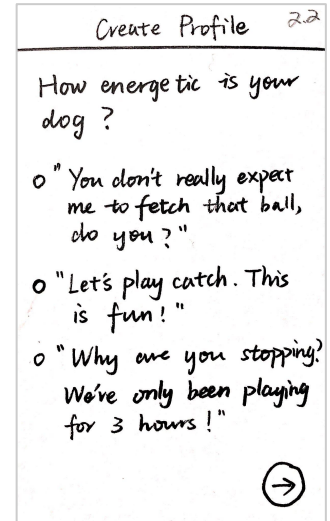 Create Profile 2.2
How energetic is your
dog ?
o "You don't really expect
me to fetch that ball,
do you ?"
o "Let's play catch. This
is fun ! "
o "Why are you stopping?
We've only been playing
for 3 hours ! "
→